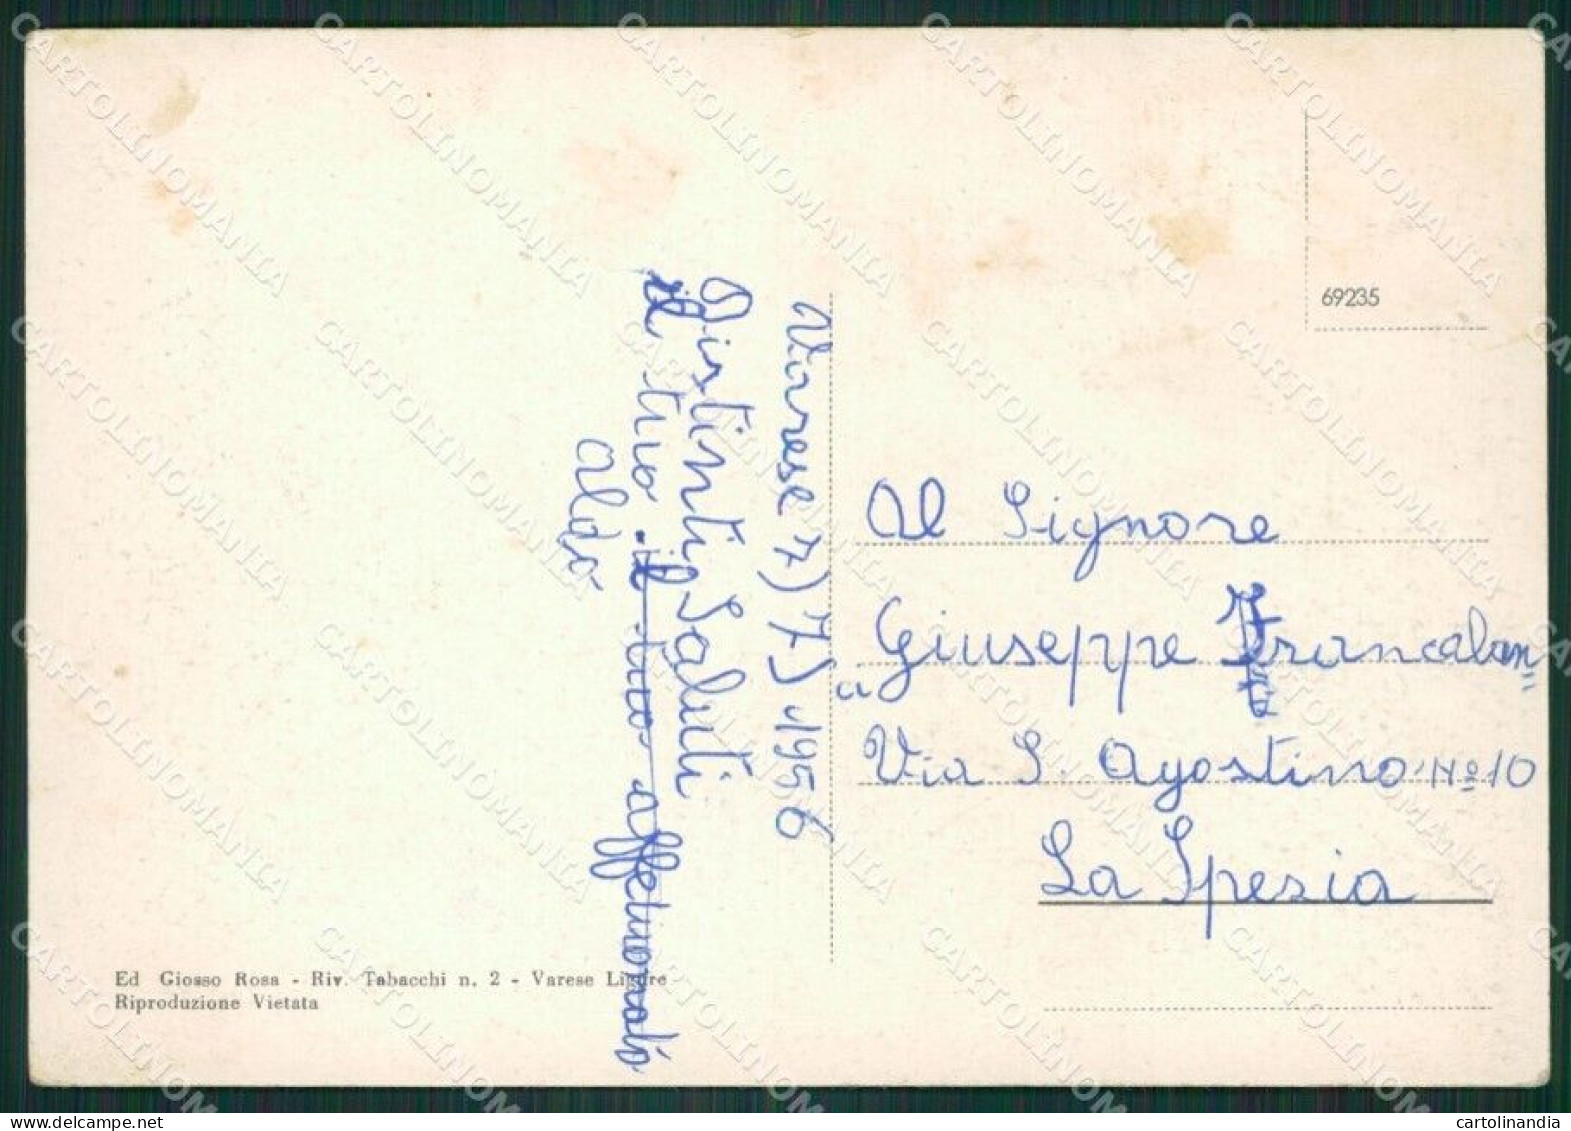 69235
Varese 7) 7) 1956
Distinti Saluti
il tuo il tuo affetionato
aldo
Al Signore
Giuseppe Francalan
Via S. Agostino Nº 10
La Spezia
Ed Giosso Rosa - Riv. Tabacchi n. 2 - Varese Ligure
Riproduzione Vietata
CARTOLINOMANIA
delcampe.net
cartolinandia